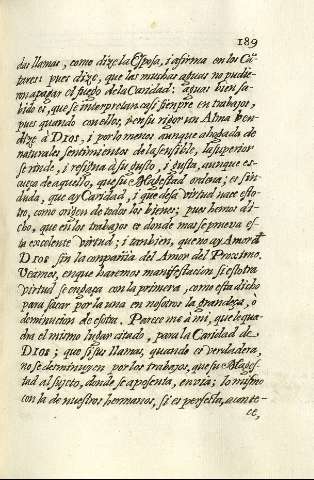 189
das llamas, como dize la Esposa, i afirma en los Cã-
tares: pues dize, que las muchas aguas no pudie-
ron apagar el fuego de la Caridad: aguas bien sa-
bido es, que se interpretan casi sienpre en trabajos,
pues quando con ellos, i en su rigor un Alma ben-
dize à DIOS, i por lo menos aunque ahogada de
naturales sentimientos de la sensible, la superior
se rinde, i resigna à su gusto, i gusta, aunque es-
cueza de aquello, que su Magestad ordena; es sin
duda, que ay Caridad, i que desa virtud nace esto-
tro, como origen de todos los bienes; pues hemos di-
cho, que en los trabajos es donde mas se prueva es-
ta excelente virtud; i tanbien, que no ay Amor dẽ
DIOS, sin la conpañia del Amor del Proximo.
Veamos, en que haremos manifestacion si estotra
virtud se engaza con la primera, como esta dicho
para sacar por la una en nosotros la grandeza, ò
deminucion de esotra. Parece me à mi, que le qua-
dra el mismo lugar citado, para la Caridad de
DIOS; que si sus llamas, quando es verdadera,
no se deminuyen por los trabajos, que su Mages-
tad al sujeto, donde se aposenta, envia; lo mismo
con la de nuestros hermanos, si es perfecta, aconte-
ce,